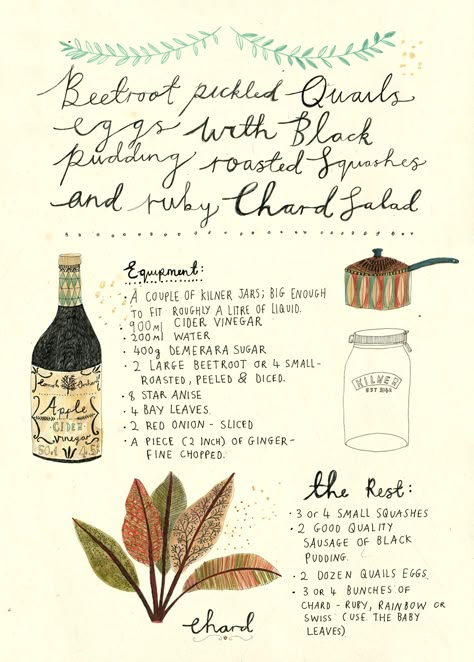 Beetroot pickled Quails
eggs with Black
pudding roasted Squashes
and ruby Chard Salad
Equipment:
· A COUPLE OF KILNER JARS; BIG ENOUGH
TO FIT ROUGHLY A LITRE OF LIQUID.
· 900ml CIDER VINEGAR
· 200ml WATER
· 400g DEMERARA SUGAR
· 2 LARGE BEETROOT OR 4 SMALL-
ROASTED, PEELED & DICED.
· 8 STAR ANISE
· 4 BAY LEAVES.
· 2 RED ONION - SLICED
· A PIECE (2 INCH) OF GINGER-
FINE CHOPPED.
Apple
CIDER
Vinegar
KILNER
the Rest:
· 3 OR 4 SMALL SQUASHES
· 2 GOOD QUALITY
SAUSAGE OF BLACK
PUDDING.
· 2 DOZEN QUAILS EGGS.
· 3 OR 4 BUNCHES OF
CHARD - RUBY, RAINBOW OR
SWISS (USE THE BABY
LEAVES)
chard